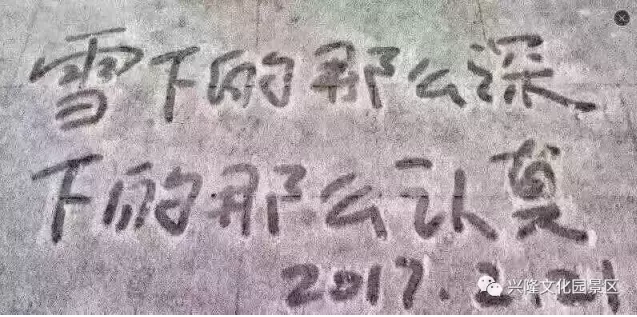 雪下的那么深
下的那么认真
2017.2.21
兴隆文化园景区